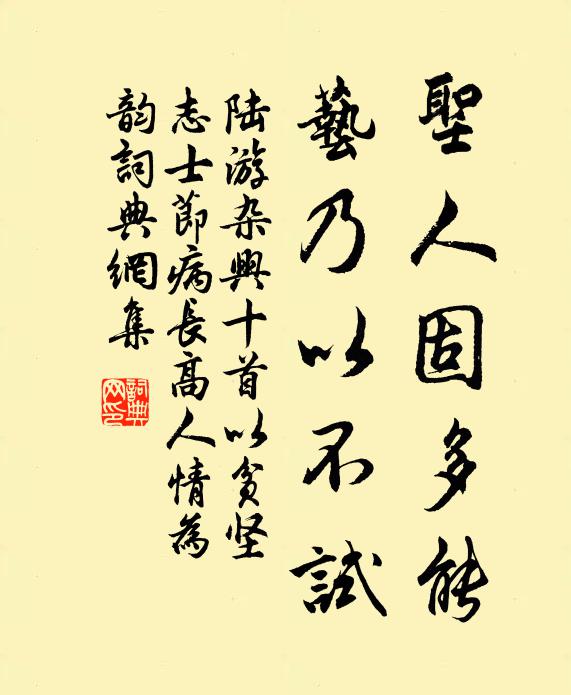 聖人固多能
藝乃以不試
陆游杂興十首以貧坚
志士節病長高人情為
韵詞典網集
詞典网印